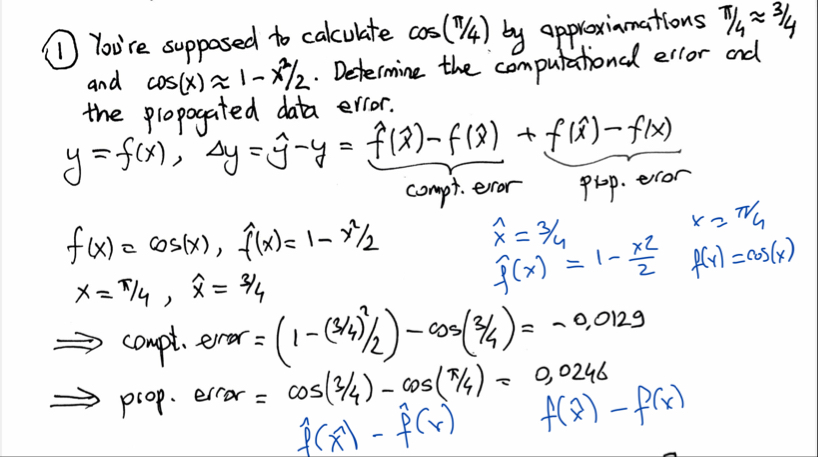 ① You're supposed to calculate cos(π/4) by approxiamations π/4 ≈ 3/4
and cos(x) ≈ 1 - x²/2. Determine the computational error and
the propogated data error.
y = f(x), Δy = ŷ - y = f̂(x̂) - f(x̂) + f(x̂) - f(x)
compt. error prop. error
f(x) = cos(x), f̂(x) = 1 - x²/2
x = π/4, x̂ = 3/4
x̂ = 3/4 x = π/4
f̂(x) = 1 - x2/2 f(x) = cos(x)
⟹ compt. error = (1 - (3/4)²/2) - cos(3/4) = -0,0129
⟹ prop. error = cos(3/4) - cos(π/4) = 0,0246
f̂(x̂) - f̂(x) f(x̂) - f(x)